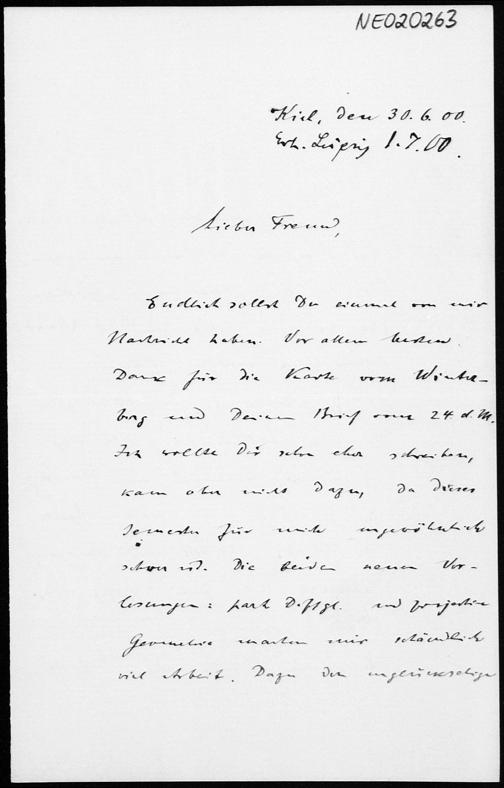 NE020263
Kiel, den 30.6.00.
Erh. Leipzig 1.7.00.
Lieber Freund,
Endlich sollst Du einmal von mir
Nachricht haben. Vor allem besten
Dank für die Karte vom Winter-
berg und Deinen Brief vom 24 d. M.
Ich wollte Dir schon eher schreiben,
kam aber nicht dazu, da dieses
Semester für mich ungewöhnlich
schwer ist. Die beiden neuen Vor-
lesungen: part. Diffgl. und projective
Geometrie machen mir schändlich
viel Arbeit. Dazu den unglückseligen